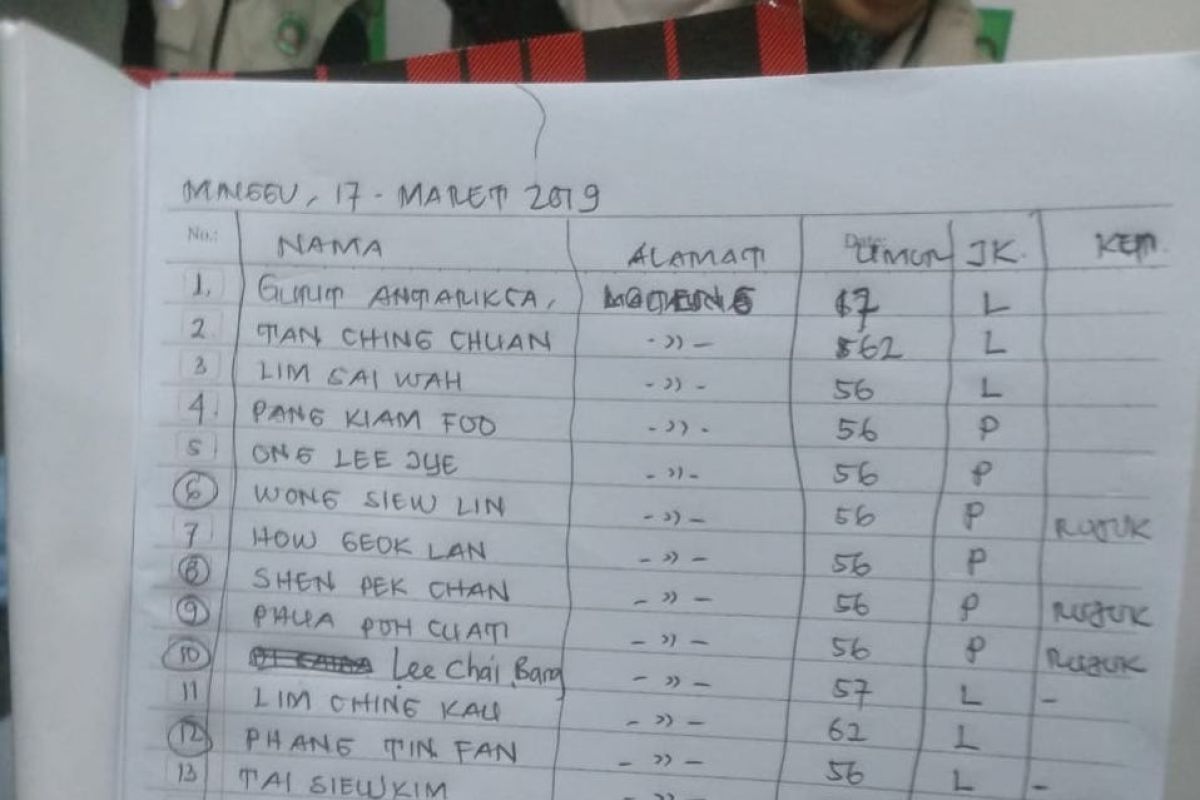 MINGGU, 17 - MARET 2019
No.: NAMA ALAMAT UMUR JK. KET.
1. ANTARIKSA, 67 L
2 TAN CHING CHUAN - " - 62 L
3 LIM SAI WAH - " - 56 L
4. PANG KIAM FOO - " - 56 P
5 ONG LEE JYE - " - 56 P
6 WONG SIEW LIN - " - 56 P RUJUK
7 HOW GEOK LAN - " - 56 P
8 SHEN PEK CHAN - " - 56 P RUJUK
9 PHUA POH CHAT - " - 56 P RUJUK
10 Lee Chai Bang - " - 57 L -
11 LIM CHING KAU - " - 62 L
12 PHANG TIN FAN - " - 56 L -
13 TAI SIEW KIM - " -